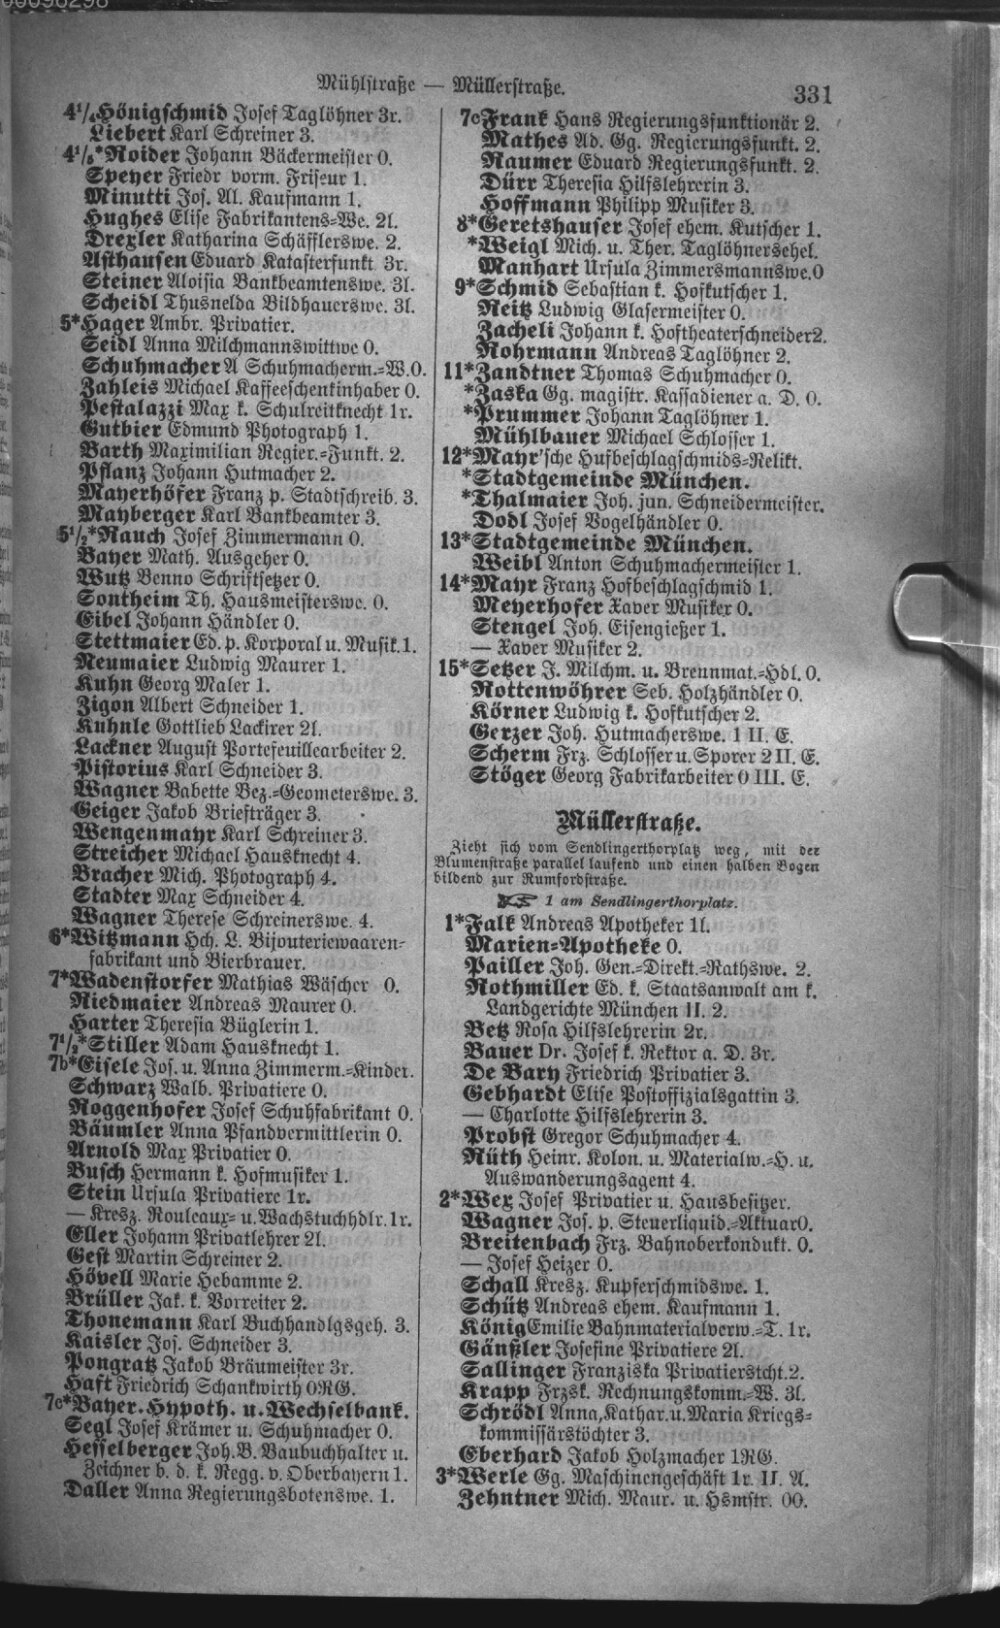 Mühlstraße — Müllerstraße. 331
4¼ Hönigschmid Josef Taglöhner 3r.
Liebert Karl Schreiner 3.
4⅕*Roider Johann Bäckermeister 0.
Speyer Friedr vorm. Friseur 1.
Minutti Jos. Al. Kaufmann 1.
Hughes Elise Fabrikantens-We. 2l.
Drexler Katharina Schäfflerswe. 2.
Asthausen Eduard Katasterfunkt 3r.
Steiner Aloisia Bankbeamtenswe. 3l.
Scheidl Thusnelda Bildhauerswe. 3l.
5*Hager Ambr. Privatier.
Seidl Anna Milchmannswittwe 0.
Schuhmacher A Schuhmacherm.-W.0.
Zahleis Michael Kaffeeschenkinhaber 0.
Pestalazzi Max k. Schulreitknecht 1r.
Gutbier Edmund Photograph 1.
Barth Maximilian Regier.-Funkt. 2.
Pflanz Johann Hutmacher 2.
Mayerhöfer Franz p. Stadtschreib. 3.
Mayberger Karl Bankbeamter 3.
5½*Rauch Josef Zimmermann 0.
Bayer Math. Ausgeher 0.
Wutz Benno Schriftsetzer 0.
Sontheim Th. Hausmeisterswe. 0.
Eibel Johann Händler 0.
Stettmaier Ed. p. Korporal u. Musik. 1.
Neumaier Ludwig Maurer 1.
Kuhn Georg Maler 1.
Zigon Albert Schneider 1.
Kuhnle Gottlieb Lackirer 2l.
Lackner August Portefeuillearbeiter 2.
Pistorius Karl Schneider 3.
Wagner Babette Bez.-Geometerswe. 3.
Geiger Jakob Briefträger 3.
Wengenmayr Karl Schreiner 3.
Streicher Michael Hausknecht 4.
Bracher Mich. Photograph 4.
Stadter Max Schneider 4.
Wagner Therese Schreinerswe. 4.
6*Witzmann Hch. L. Bijouteriewaaren-
fabrikant und Bierbrauer.
7*Wadenstorfer Mathias Wäscher 0.
Riedmaier Andreas Maurer 0.
Harter Theresia Büglerin 1.
7½*Stiller Adam Hausknecht 1.
7b*Eisele Jos. u. Anna Zimmerm.-Kinder.
Schwarz Walb. Privatiere 0.
Roggenhofer Josef Schuhfabrikant 0.
Bäumler Anna Pfandvermittlerin 0.
Arnold Max Privatier 0.
Busch Hermann k. Hofmusiker 1.
Stein Ursula Privatiere 1r.
— Kresz. Rouleaux- u. Wachstuchhdlr. 1r.
Eller Johann Privatlehrer 2l.
Gest Martin Schreiner 2.
Hövell Marie Hebamme 2.
Brüller Jak. k. Vorreiter 2.
Thonemann Karl Buchhandlgsgeh. 3.
Kaisler Jos. Schneider 3.
Pongratz Jakob Bräumeister 3r.
Haft Friedrich Schankwirth 0RG.
7c*Bayer. Hypoth. u. Wechselbank.
Segl Josef Krämer u. Schuhmacher 0.
Hesselberger Joh. B. Baubuchhalter u.
Zeichner b. d. k. Regg. v. Oberbayern 1.
Daller Anna Regierungsbotenswe. 1.
7c Frank Hans Regierungsfunktionär 2.
Mathes Ad. Gg. Regierungsfunkt. 2.
Raumer Eduard Regierungsfunkt. 2.
Dürr Theresia Hilfslehrerin 3.
Hoffmann Philipp Musiker 3.
8*Geretshauser Josef ehem. Kutscher 1.
*Weigl Mich. u. Ther. Taglöhnersehel.
Manhart Ursula Zimmersmannswe. 0
9*Schmid Sebastian k. Hofkutscher 1.
Reitz Ludwig Glasermeister 0.
Zacheli Johann k. Hoftheaterschneider 2.
Rohrmann Andreas Taglöhner 2.
11*Zandtner Thomas Schuhmacher 0.
*Zaska Gg. magistr. Kassadiener a. D. 0.
*Prummer Johann Taglöhner 1.
Mühlbauer Michael Schlosser 1.
12*Mayr'sche Hufbeschlagschmids-Relikt.
*Stadtgemeinde München.
*Thalmaier Joh. jun. Schneidermeister.
Dodl Josef Vogelhändler 0.
13*Stadtgemeinde München.
Weibl Anton Schuhmachermeister 1.
14*Mayr Franz Hofbeschlagschmid 1.
Meyerhofer Xaver Musiker 0.
Stengel Joh. Eisengießer 1.
— Xaver Musiker 2.
15*Setzer J. Milchm. u. Brennmat.-Hdl. 0.
Rottenwöhrer Seb. Holzhändler 0.
Körner Ludwig k. Hofkutscher 2.
Gerzer Joh. Hutmacherswe. 1 II. E.
Scherm Frz. Schlosser u. Sporer 2 II. E.
Stöger Georg Fabrikarbeiter 0 III. E.
Müllerstraße.
Zieht sich vom Sendlingerthorplatz weg, mit der
Blumenstraße parallel laufend und einen halben Bogen
bildend zur Rumfordstraße.
☞ 1 am Sendlingerthorplatz.
1*Falk Andreas Apotheker 1l.
Marien-Apotheke 0.
Pailler Joh. Gen.-Direkt.-Rathswe. 2.
Rothmiller Ed. k. Staatsanwalt am k.
Landgerichte München II. 2.
Betz Rosa Hilfslehrerin 2r.
Bauer Dr. Josef k. Rektor a. D. 3r.
De Bary Friedrich Privatier 3.
Gebhardt Elise Postoffizialsgattin 3.
— Charlotte Hilfslehrerin 3.
Probst Gregor Schuhmacher 4.
Rüth Heinr. Kolon. u. Materialw.-H. u.
Auswanderungsagent 4.
2*Wex Josef Privatier u. Hausbesitzer.
Wagner Jos. p. Steuerliquid.-Aktuar 0.
Breitenbach Frz. Bahnoberkondukt. 0.
— Josef Heizer 0.
Schall Kresz. Kupferschmidswe. 1.
Schütz Andreas ehem. Kaufmann 1.
König Emilie Bahnmaterialverw.-T. 1r.
Gänßler Josefine Privatiere 2l.
Sallinger Franziska Privatierstcht. 2.
Krapp Frzsk. Rechnungskomm.-W. 3l.
Schrödl Anna, Kathar. u. Maria Kriegs-
kommissärstöchter 3.
Eberhard Jakob Holzmacher 1RG.
3*Werle Gg. Maschinengeschäft 1r. II. A.
Zehntner Mich. Maur. u. Hsmstr. 00.